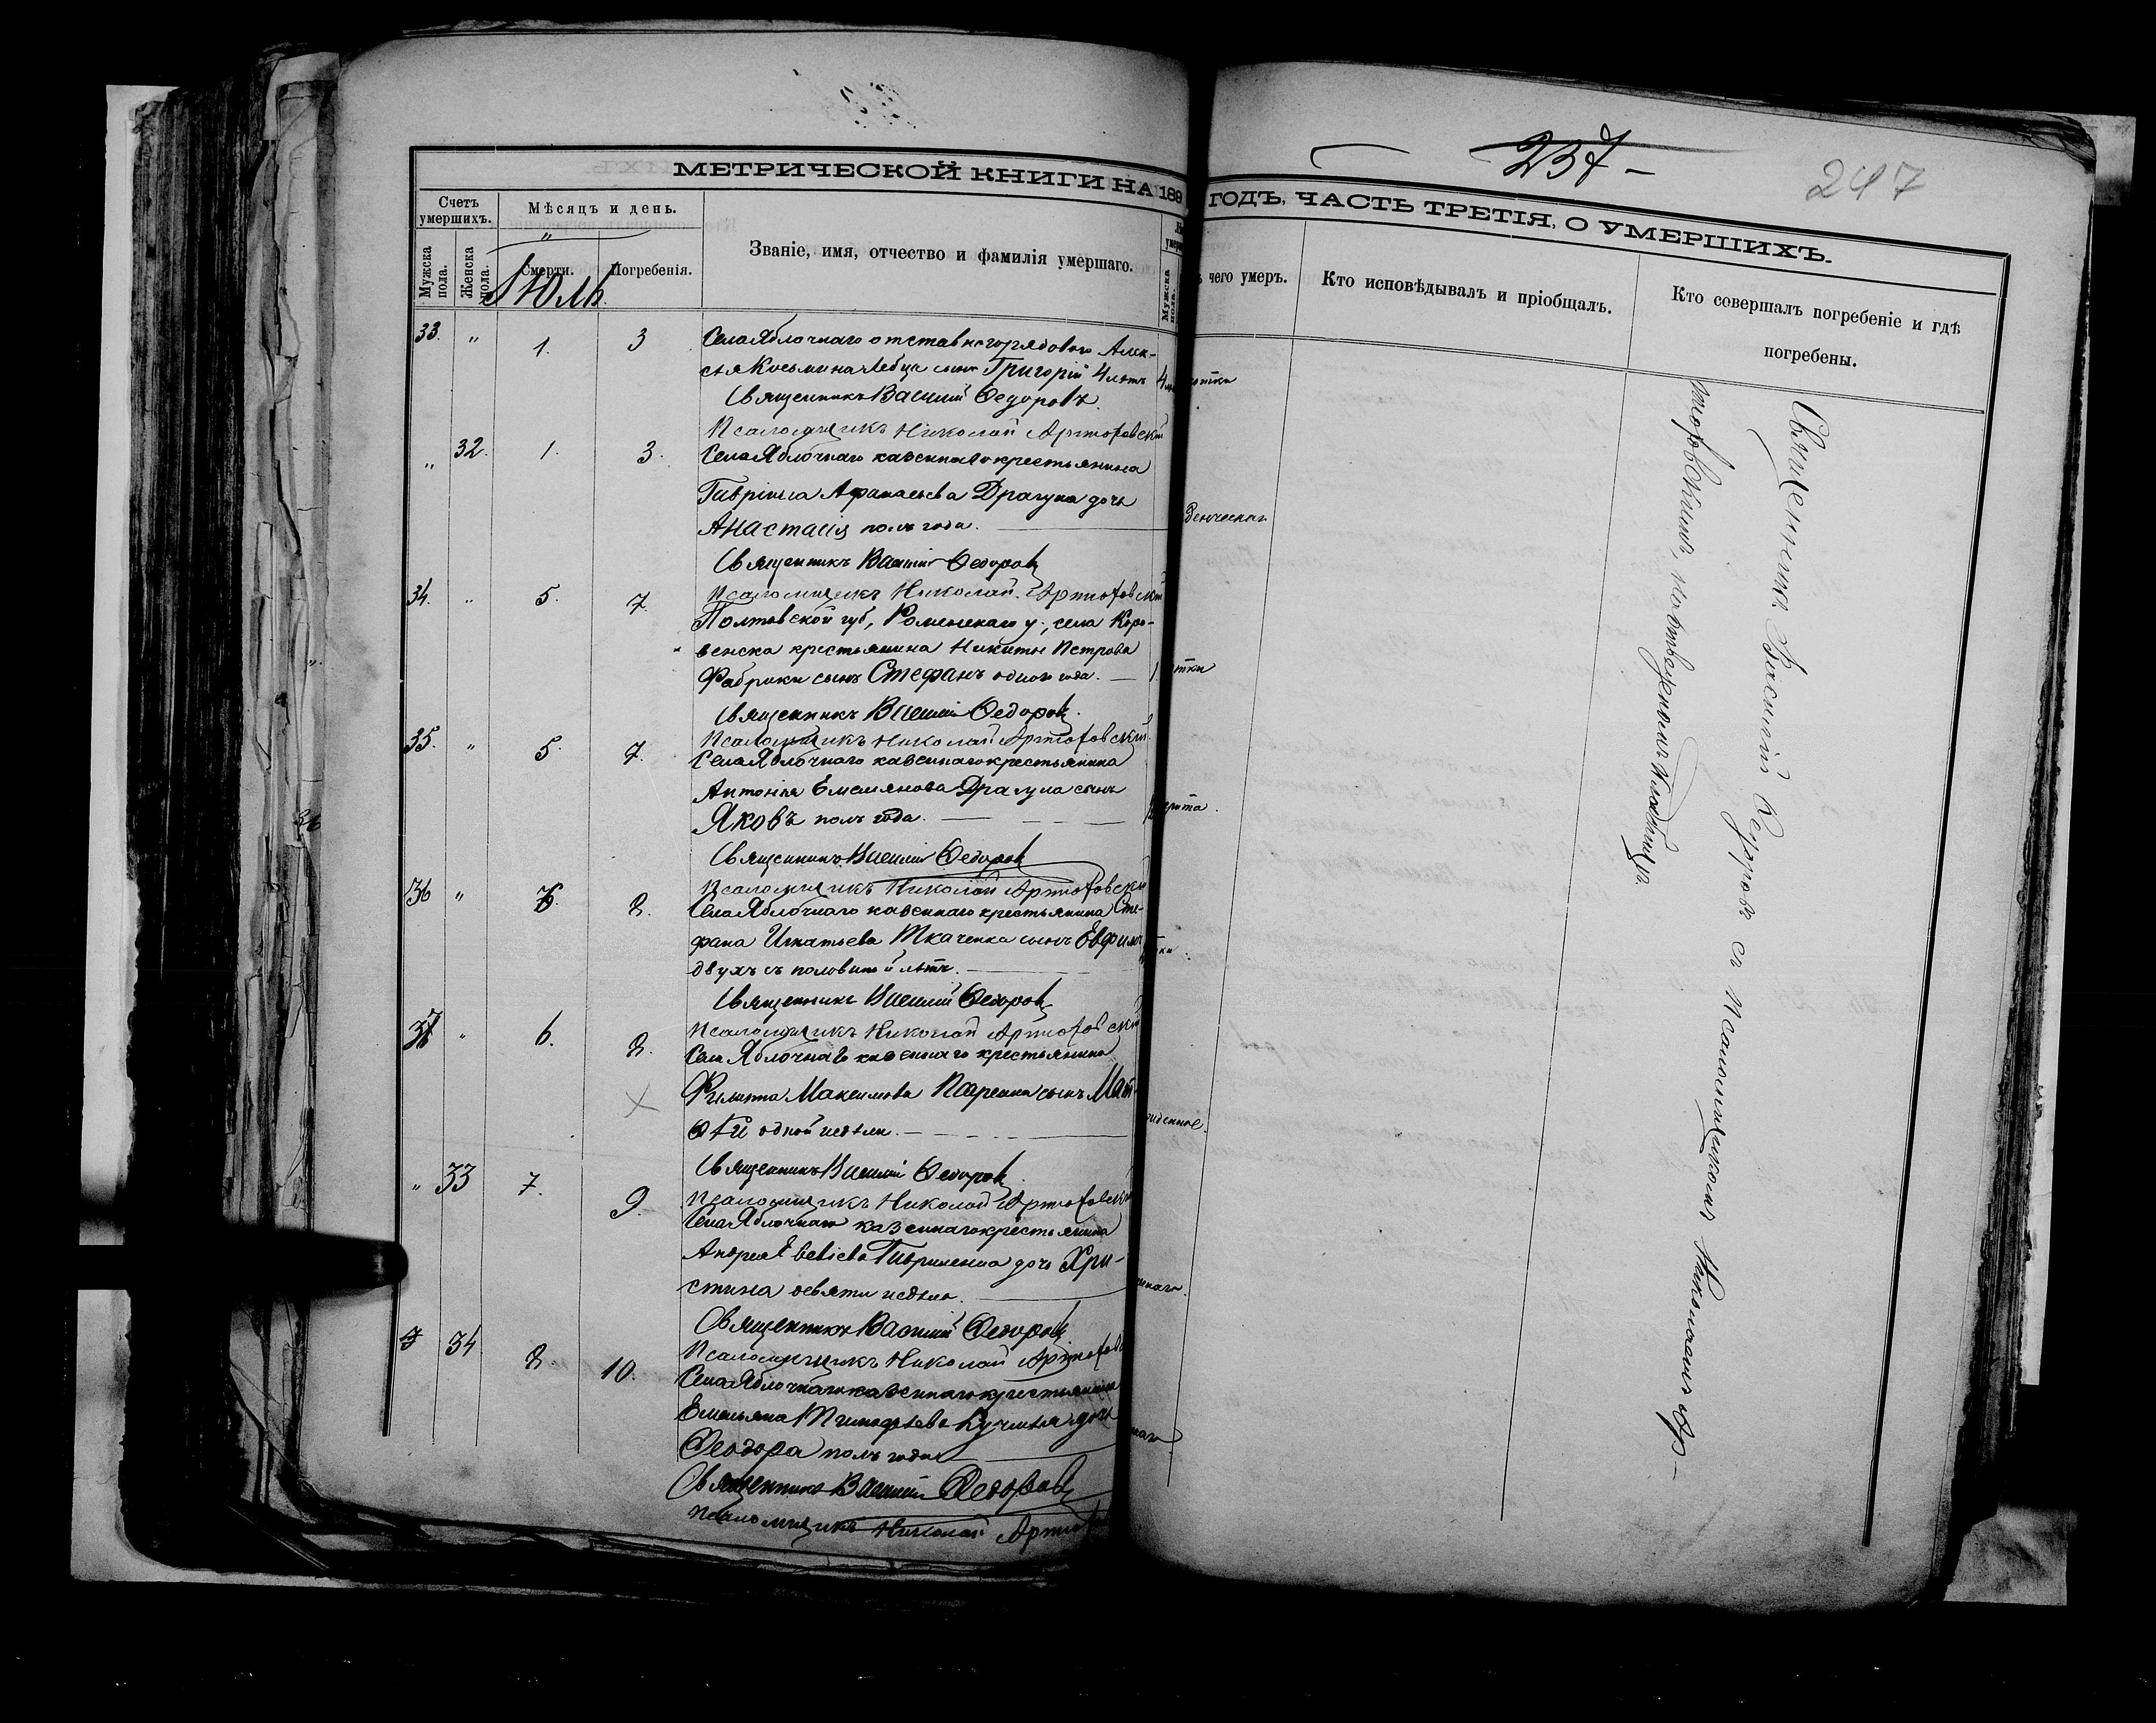 237
247
МЕТРИЧЕСКОЙ КНИГИ НА 189 ГОДЪ, ЧАСТЬ ТРЕТІЯ, О УМЕРШИХЪ.
Счетъ умершихъ.
Мужска пола.
Женска пола.
Мѣсяцъ и день.
Смерти.
Погребенія.
Іюль.
Званіе, имя, отчество и фамилія умершаго.
Мужска пола.
чего умеръ.
Кто исповѣдывалъ и пріобщалъ.
Кто совершалъ погребеніе и гдѣ
погребены.
33. " 1. 3
Села Яблочнаго отставнаго рядового Алек-
сѣя Косьмина сынъ Григорій 4 лѣтъ
Священникъ Василій Ѳедоровъ.
Псаломщикъ Николай Артюховскій
" 32. 1. 3.
Села Яблочнаго казеннаго крестьянина
Гавріила Афанасьева Драгуна дочь
Анастасія полъ года.
Священникъ Василій Ѳедоровъ
Псаломщикъ Николай Артюховскій
34. " 5. 7.
Полтавской губ, Роменскаго у., села Коро-
венска крестьянина Никиты Петрова
Фабрики сынъ Стефанъ одного года.
Священникъ Василій Ѳедоровъ.
Псаломщикъ Николай Артюховскій.
35. " 5. 7.
Села Яблочнаго казеннаго крестьянина
Антонія Емельянова Драгуна сынъ
Яковъ полъ года.
Священникъ Василій Ѳедоровъ
Псаломщикъ Николай Артюховскій
36 " 6. 8.
Села Яблочнаго казеннаго крестьянина Сте-
фана Игнатьева Ткаченка сынъ Евфимій
двухъ съ половиной лѣтъ.
Священникъ Василій Ѳедоровъ
Псаломщикъ Николай Артюховскій
37 " 6. 8.
Села Яблочнаго казеннаго крестьянина
Филиппа Максимова сынъ Мат-
ѳѣй одной недѣли.
Священникъ Василій Ѳедоровъ
Псаломщикъ Николай Артюховскій
" 33 7. 9.
Села Яблочнаго казеннаго крестьянина
Андрея Евсѣева Гавриленка дочь Хри-
стина девяти недѣль.
Священникъ Василій Ѳедоровъ
Псаломщикъ Николай Артюховс
34 8. 10.
Села Яблочнаго казеннаго крестьянина
Емельяна Тимофѣева дочь
Ѳеодора полъ года
Священникъ Василій Ѳедоровъ
Псаломщикъ Николай Артюх
Священникъ Василій Ѳедоровъ съ Псаломщикомъ Николаемъ Ар-
тюховскимъ, на отведенномъ кладбищѣ.